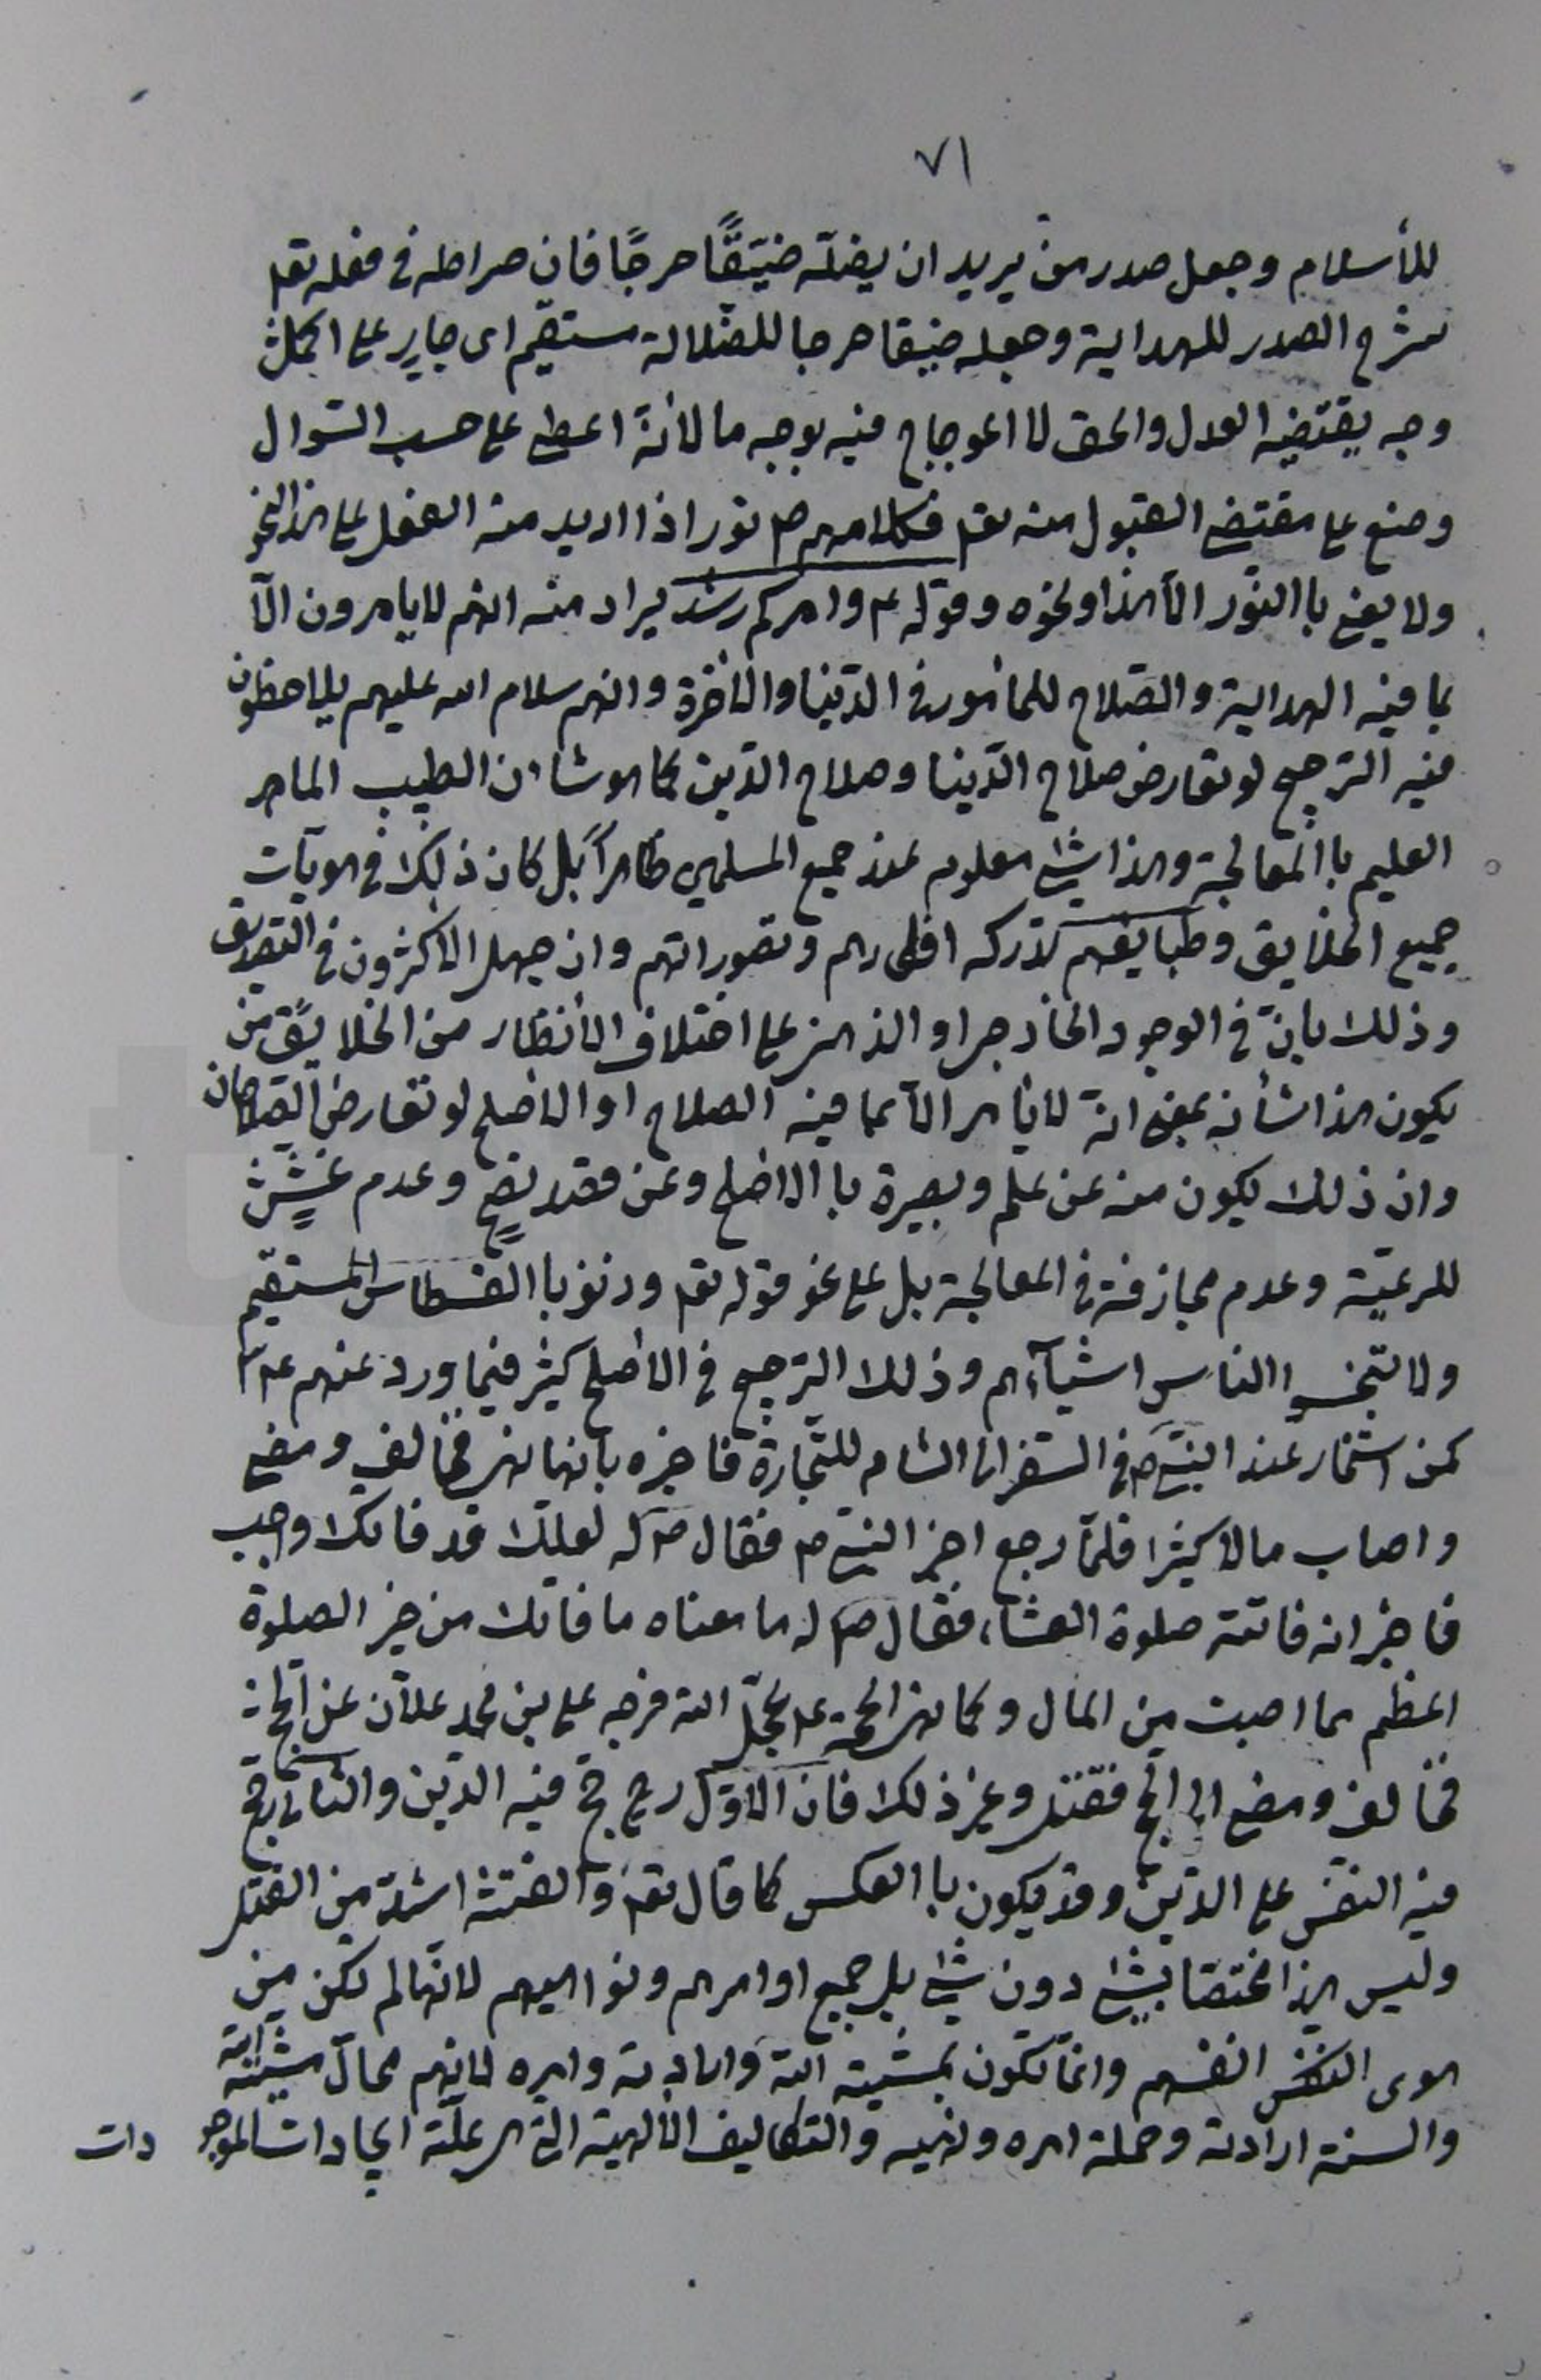 ٧١
للأسلام وجعل صدر من يريد ان يضلّه ضيّقًا حرجًا فان صراطه في فعله تع
شرح الصدر للهداية وجعله ضيقا حرجا للضلالة مستقيم اى جاير على اكمل
وجه يقتضيه العدل والحق لا اعوجاج فيه بوجه ما لأنّه اعطى على حسب السّوال
وصنع على مقتضى القبول منه تع فكلامهم ص نور اذا اريد منه العقل على هذا النحو
ولا يعنى با النّور الّا هذا ونحوه وقوله ع وامركم رشد يراد منه انهم لا يامرون الّا
بما فيه الهداية والصّلاح للمأمور في الدّنيا والأخرة وانهم سلام الله عليهم يلاحظون
فيه الترجيح لو تعارض صلاح الدّنيا وصلاح الدّين كما هو شان الطبيب الماهر
العليم با المعالجة وهذا شئ معلوم عند جميع المسلمين ظاهراً بل كان ذلك في هويّات
جميع الخلايق وطبايعهم تدركه افكارهم وتصوراتهم وان جهل الاكثرون في التصديق
وذلك بان في الوجود الخارجى او الذهنى على اختلاف الأنظار من الخلايق من
يكون هذا شأنه بمعنى انّه لا يأمر الّا بما فيه الصلاح او الاصلح لو تعارض الصلاحان
وان ذلك يكون منه عن علم وبصيرة با الاصلح وعن قصد نصح وعدم غشّ
للرعيّة وعدم مجازفة في المعالجة بل على نحو قوله تع وزنوا با القسطاس المستقيم
ولا تبخسوا الناس اشيآءهم وذلك الترجيح في الاصلح كثير فيما ورد عنهم ع
كمن استخار عند النبىّ ص في السّفر الى الشام للتّجارة فاخبره بانها نهى فخالف ومضى
واصاب مالا كثيرا فلمّا رجع اخبر النبىّ ص فقال ص له لعلك قد فاتك واجب
فاخبر انه فاتته صلوة العشاء فقال ص له ما معناه ما فاتك من خير الصلوة
اعظم مما اصبت من المال وكما نهى الحجة ع عجّل الله فرجه على بن محمد علّان عن الحج
فخالف ومضى الى الحج فقتل وغير ذلك فان الاوّل رجح فيه الدّين والثانى رجح
فيه النفس على الدّين وقد يكون با العكس كما قال تع والفتنة اشدّ من القتل
وليس هذا مختصّا بشئ دون شئ بل جميع اوامرهم ونواهيهم لانّها لم تكن من
هوى النفس انفسهم وانّما تكون بمشيّة الله وارادته وامره لانهم محالّ مشيّة الله
والسنة ارادته وحملة امره ونهيه والتكاليف الألهية التى هى علّة ايجادات الموجو دات